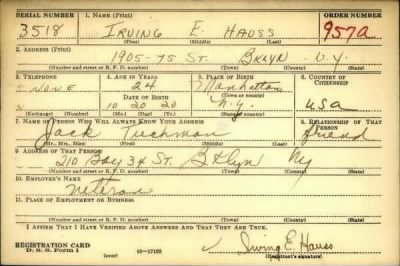 SERIAL NUMBER 1. NAME (Print) ORDER NUMBER
3518 IRVING E. HAUSS 957a
(First) (Middle) (Last)
2. ADDRESS (Print)
1905-75 ST. BKLYN N.Y.
(Number and street or R. F. D. number) (Town) (County) (State)
3. TELEPHONE 4. AGE IN YEARS 5. PLACE OF BIRTH 6. COUNTRY OF CITIZENSHIP
NONE 24 Manhattan
DATE OF BIRTH (Town or county)
10 20 20 N.Y. USA
(Exchange) (Number) (Mo.) (Day) (Yr.) (State or country)
7. NAME OF PERSON WHO WILL ALWAYS KNOW YOUR ADDRESS 8. RELATIONSHIP OF THAT PERSON
Jack Tuchman friend
(Mr., Mrs., Miss) (First) (Middle) (Last)
9. ADDRESS OF THAT PERSON
210 Bay 34 St. Bklyn Ny
(Number and street or R. F. D. number) (Town) (County) (State)
10. EMPLOYER'S NAME
Veteran
11. PLACE OF EMPLOYMENT OR BUSINESS
(Number and street or R. F. D. number) (Town) (County) (State)
I AFFIRM THAT I HAVE VERIFIED ABOVE ANSWERS AND THAT THEY ARE TRUE.
REGISTRATION CARD
D. S. S. Form 1 (over) Irving E. Hauss
(Registrant's signature)